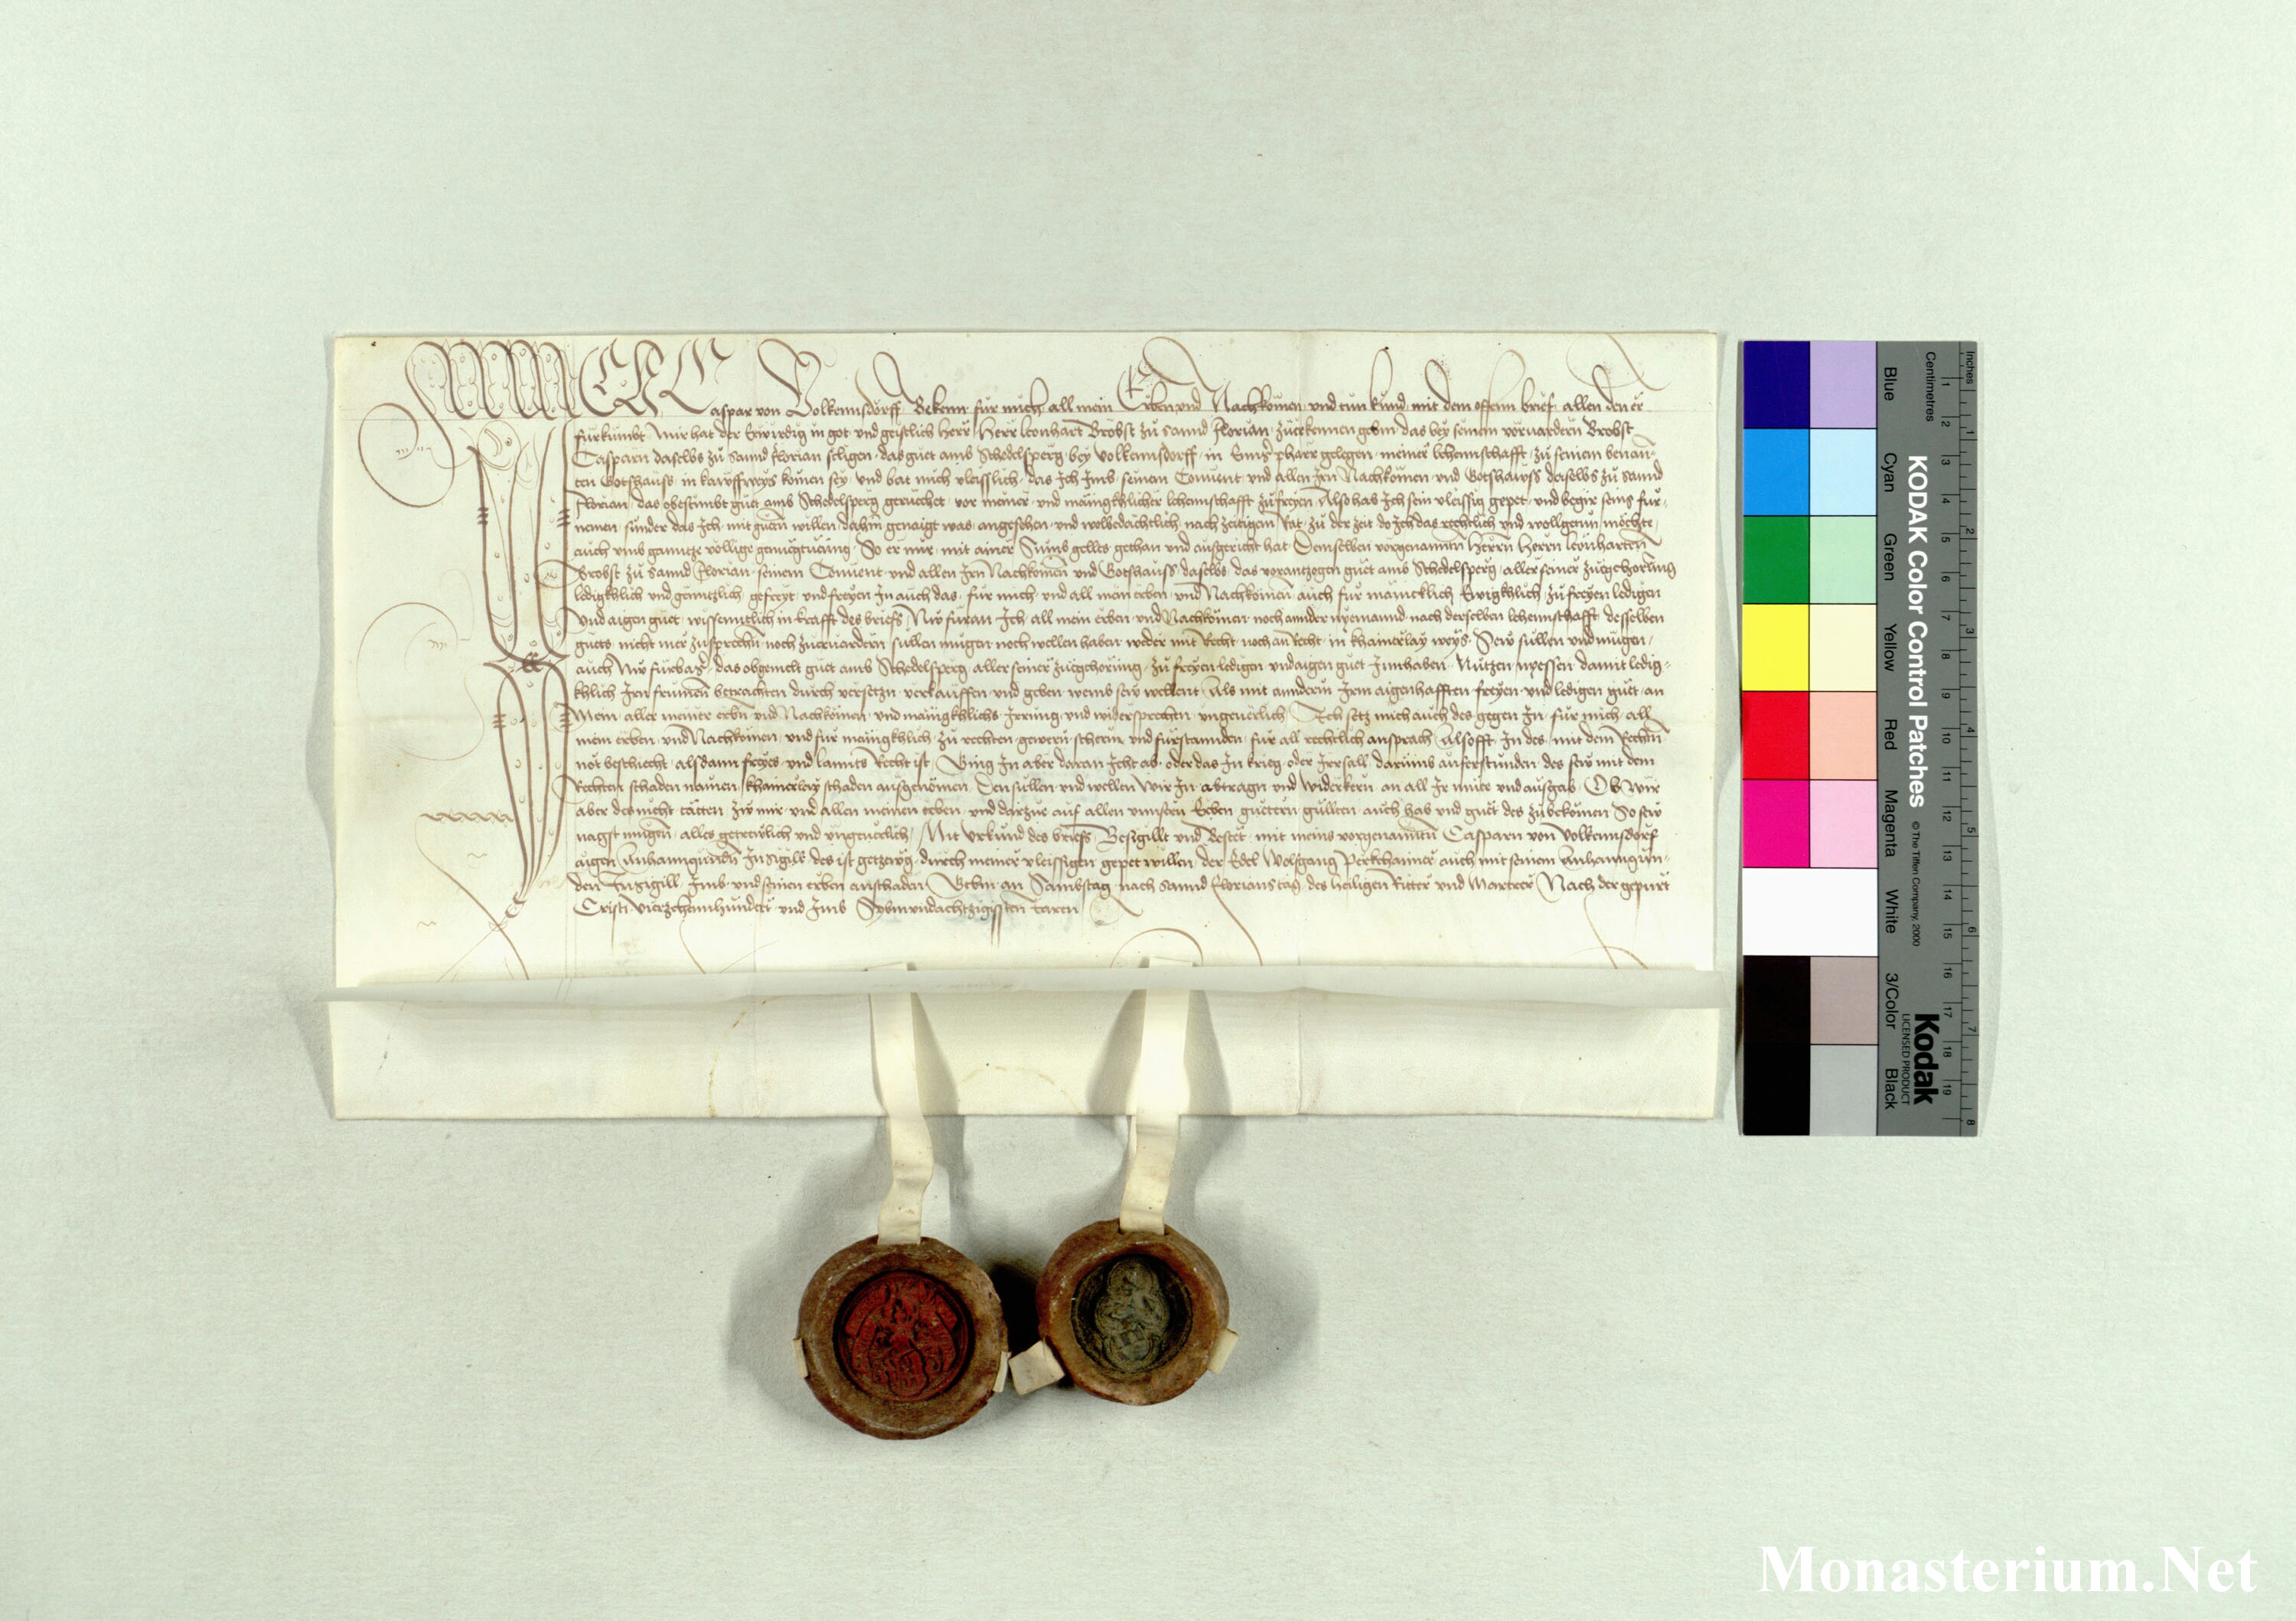 ICH Caspar von Volkennsdorff Bekenn für mich all mein Erben und Nachkomen und tun kund mit dem offenn brief allen den er
fürkumbt Mir hat der Erwirdig in got und geistlich Herr Herr Leonhart Brobst zu sannd Florian zuerkennen gebm das bey seinem voruardern Brobst
Casparn daselbs zu sannd Florian seligen das guet amb Schedelsperg bey Volkennsdorff in Ennser pharr gelegen meiner lehennschafft zu seinem benan-
ten Gotshauss in kauffweys komen sey und bat mich vleisslich das Ich Imb seinem Conuent und allen Irn Nachkomen und Gotshawss daselbs zu sannd
Florian das obestimbt guet amb Schedelsperg geruechet vor meiner und mänigkhlicher lehennschafft zufreyen Also hab Ich sein vleissig gepet und begir seins für-
nemen sunder das Ich mit guetn willen dahin genaigt was angesehen und wolbedächtlich nach zeitigem Rat zu der zeit do Ich das rechtlich und wollgetun möchte
auch umb ganntze völlige genuegtueung So er mir mit ainer Summ gellts gethan und ausgericht hat Demselben vorgenannten Herrn Herrn Leonharten
Brobst zu sannd Florian seinem Conuent und allen Irn Nachkomen und Gotshauss daselbs das vorantzogen guet amb Schedelsperg aller seiner zuegehorung
ledigkhlich und genntzlich gefreyt und freyen In auch das für mich und all mein erben und Nachkomen auch für mänicklich Ewigkhlich zu freyen ledigen
Und aigen guet wissenntlich in krafft des briefs Nw füran Ich all mein erben und Nachkomen noch annder nyemannd nach derselben lehennschafft desselben
guets nicht mer zusprechn noch zueruardern sullen mugen noch wellen haben weder mit Recht noch an Recht in khainerlay weys Sew sullen und mugen
auch Nw fürbas das obgemelt guet amb Schedelsperg aller seiner zuegehorung zu freyen ledigen und aigen guet Innhaben Nützen nyessen damit ledig-
khlich Irn frumen betrachten durch versetzn verkauffen und geben wemb sew wellent Als mit anndern Irm aigenhafften freyen und ledigen guet an
Mein aller meiner erbn und Nachkomen und mänigkhlichs Irrung und widersprechen ungeuerlich Ich setz mich auch des gegen In für mich all
mein erben und Nachkomen und für mänigkhlich zu rechten gewern scherm und fürstannden für all rechtlich ansprach Alsofft In des mit dem Rechtn
not beschiecht alsdann freyes und lannts Recht ist Ging In aber daran Icht ab oder das In krieg oder Irrsall darumb auferstunden des sew mit dem
Rechten schaden namen khainerlay schaden ausgenomen Den sullen und wellen wir In abtragn und widerkern an all Ir müe und ausgab Ob wir
aber des nicht tätten zw mir und allen meinen erben und darzue auf allen unnsern Erben guettern güllten auch hab und guet des zubekomen So sew
nagst mugen alles getreulich und ungeuerlich Mit urkund des briefs Besigillt und Bestet mit meins vorgenannten Casparn von Volkennsdorf
aigen Anhanngundn Insigill des ist getzewg durch meiner vleissigen gepet willen der Edel Wolfgang Perkhaimer auch mit seinem Anhanngun-
den Insigill Imb und seinen erben anschaden Gebm an Sambstag nach sannd Florians tag des heiligen Ritter und Martrer Nach der gepurt
Cristi vierzehennhundert und Imb Sybmundachtzigissten Jaren
KODAK Color Control Patches
© The Tiffen Company, 2000
Kodak
LICENSED PRODUCT
Blue
Cyan
Green
Yellow
Red
Magenta
White
3/Color
Black
Centimetres
Inches
1 2 3 4 5 6 7 8 9 10 11 12 13 14 15 16 17 18 19
1 2 3 4 5 6 7 8
Monasterium.Net